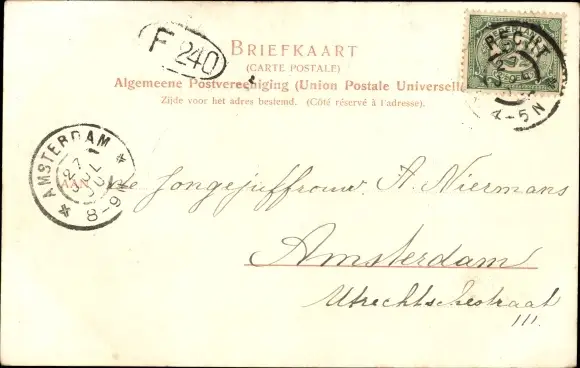 F 240
BRIEFKAART
(CARTE POSTALE)
Algemeene Postvereeniging (Union Postale Universelle
Zijde voor het adres bestemd. (Côté réservé à l'adresse).
RECHT
4-5 N
AMSTERDAM
27
JUL
8-9
Jongejuffrouw A. Niermans
Amsterdam
Utrechtschestraat
111.